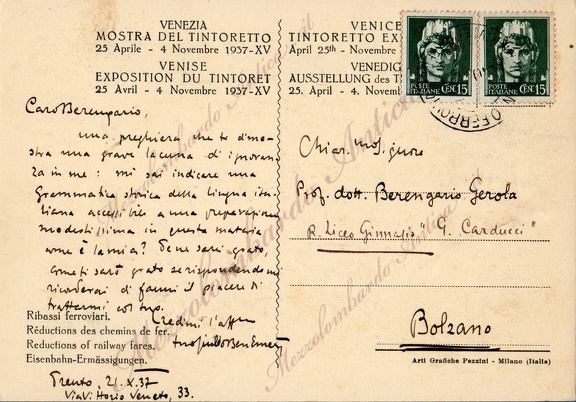 VENEZIA
MOSTRA DEL TINTORETTO
25 Aprile - 4 Novembre 1937-XV
VENISE
EXPOSITION DU TINTORET
25 Avril - 4 Novembre 1937-XV
VENICE
TINTORETTO EX
April 25th - Novembe
VENEDIG
AUSSTELLUNG des T
25. April - 4. Novemb
POSTE ITALIANE CENT 15
POSTE ITALIANE CENT 15
Caro Berengario,
una preghiera che te dimo-
stra una grave lacuna di ignoran-
za in me: mi sai indicare una
Grammatica storica della lingua ita-
liana accessibile a una preparazione
modestissima in questa materia
come è la mia? Te ne sarò grato,
come ti sarò grato se rispondendomi
ricorderai di farmi il piacere di
trattarmi col tu.
Credimi l'aff
Trento, 21.X.37
Via Vittorio Veneto, 33.
Ribassi ferroviari.
Réductions des chemins de fer.
Reductions of railway fares.
Eisenbahn-Ermässigungen.
Chiar.mo Signore
Prof. dott. Berengario Gerola
R. Liceo Ginnasio "G. Carducci"
Bolzano
Arti Grafiche Pezzini - Milano (Italia)
Mezzolombardo Antica
Mezzolombardo Antica